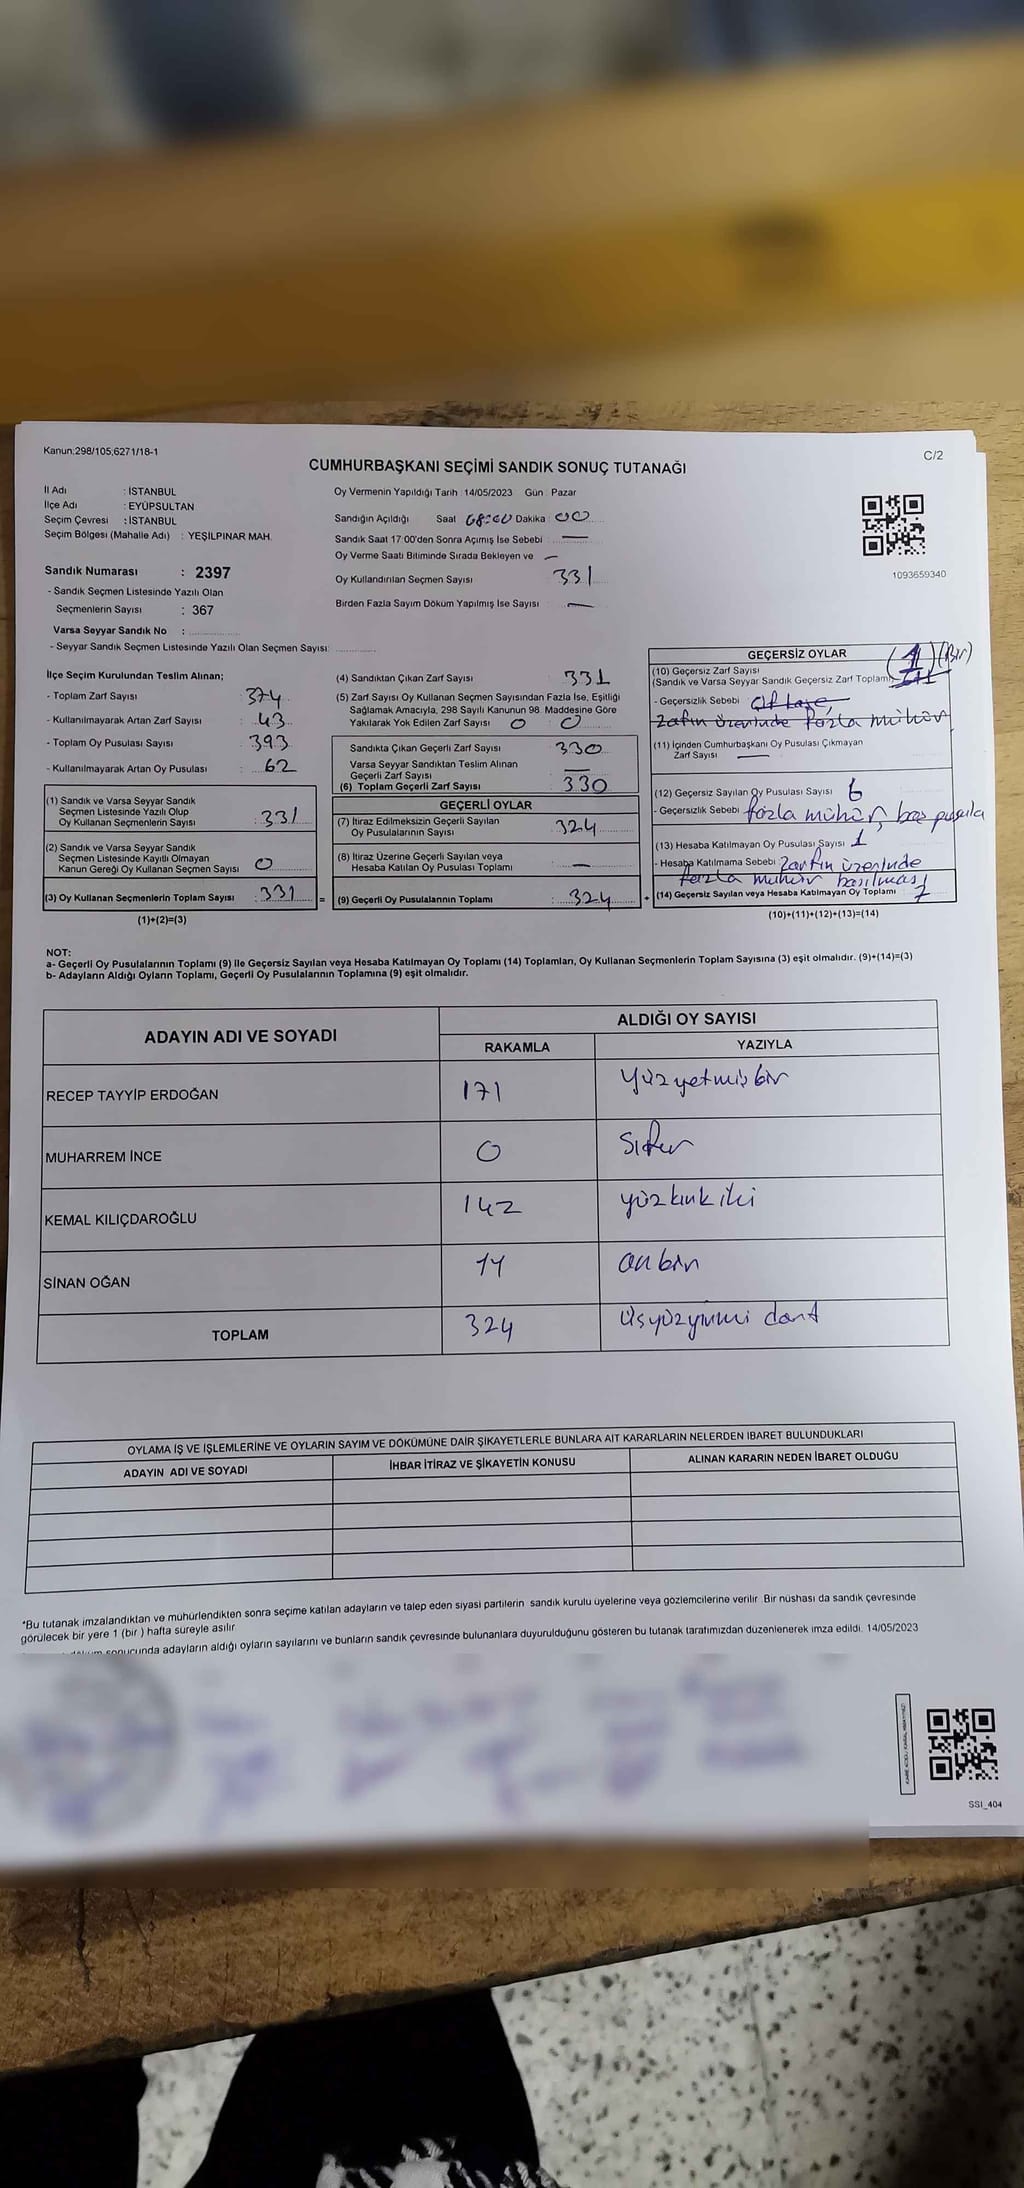 Kanun:298/105;6271/18-1
C/2
CUMHURBAŞKANI SEÇİMİ SANDIK SONUÇ TUTANAĞI
İl Adı : İSTANBUL
İlçe Adı : EYÜPSULTAN
Seçim Çevresi : İSTANBUL
Seçim Bölgesi (Mahalle Adı) : YEŞİLPINAR MAH.
Sandık Numarası : 2397
- Sandık Seçmen Listesinde Yazılı Olan
Seçmenlerin Sayısı : 367
Varsa Seyyar Sandık No :
- Seyyar Sandık Seçmen Listesinde Yazılı Olan Seçmen Sayısı:
Oy Vermenin Yapıldığı Tarih :14/05/2023 Gün : Pazar
Sandığın Açıldığı Saat 08:00 Dakika : 00
Sandık Saat 17:00'den Sonra Açımış İse Sebebi : —
Oy Verme Saati Bitiminde Sırada Bekleyen ve —
Oy Kullandırılan Seçmen Sayısı 331
Birden Fazla Sayım Döküm Yapılmış İse Sayısı : —
1093659340
İlçe Seçim Kurulundan Teslim Alınan;
- Toplam Zarf Sayısı : 374
- Kullanılmayarak Artan Zarf Sayısı : 43
- Toplam Oy Pusulası Sayısı : 393
- Kullanılmayarak Artan Oy Pusulası : 62
(1) Sandık ve Varsa Seyyar Sandık
Seçmen Listesinde Yazılı Olup
Oy Kullanan Seçmenlerin Sayısı : 331
(2) Sandık ve Varsa Seyyar Sandık
Seçmen Listesinde Kayıtlı Olmayan
Kanun Gereği Oy Kullanan Seçmen Sayısı : 0
(3) Oy Kullanan Seçmenlerin Toplam Sayısı : 331 =
(1)+(2)=(3)
(4) Sandıktan Çıkan Zarf Sayısı : 331
(5) Zarf Sayısı Oy Kullanan Seçmen Sayısından Fazla İse, Eşitliği
Sağlamak Amacıyla, 298 Sayılı Kanunun 98. Maddesine Göre
Yakılarak Yok Edilen Zarf Sayısı 0 : 0
Sandıkta Çıkan Geçerli Zarf Sayısı : 330
Varsa Seyyar Sandıktan Teslim Alınan
Geçerli Zarf Sayısı : —
(6) Toplam Geçerli Zarf Sayısı : 330
GEÇERLİ OYLAR
(7) İtiraz Edilmeksizin Geçerli Sayılan
Oy Pusulalarının Sayısı : 324
(8) İtiraz Üzerine Geçerli Sayılan veya
Hesaba Katılan Oy Pusulası Toplamı : —
(9) Geçerli Oy Pusulalarının Toplamı : 324 +
GEÇERSİZ OYLAR
(10) Geçersiz Zarf Sayısı (1) (Bir)
(Sandık ve Varsa Seyyar Sandık Geçersiz Zarf Toplamı)
- Geçersizlik Sebebi
Zarfın üzerinde fazla mühür
(11) İçinden Cumhurbaşkanı Oy Pusulası Çıkmayan
Zarf Sayısı —
(12) Geçersiz Sayılan Oy Pusulası Sayısı 6
- Geçersizlik Sebebi fazla mühür, boş pusula
(13) Hesaba Katılmayan Oy Pusulası Sayısı 1
- Hesaba Katılmama Sebebi Zarfın üzerinde
fazla mühür basılması
(14) Geçersiz Sayılan veya Hesaba Katılmayan Oy Toplamı : 7
(10)+(11)+(12)+(13)=(14)
NOT:
a- Geçerli Oy Pusulalarının Toplamı (9) ile Geçersiz Sayılan veya Hesaba Katılmayan Oy Toplamı (14) Toplamları, Oy Kullanan Seçmenlerin Toplam Sayısına (3) eşit olmalıdır. (9)+(14)=(3)
b- Adayların Aldığı Oyların Toplamı, Geçerli Oy Pusulalarının Toplamına (9) eşit olmalıdır.
ADAYIN ADI VE SOYADI
ALDIĞI OY SAYISI
RAKAMLA YAZIYLA
RECEP TAYYİP ERDOĞAN 171 yüzyetmişbir
MUHARREM İNCE 0 Sıfır
KEMAL KILIÇDAROĞLU 142 yüzkırkiki
SİNAN OĞAN 11 onbir
TOPLAM 324 üçyüzyirmi dört
OYLAMA İŞ VE İŞLEMLERİNE VE OYLARIN SAYIM VE DÖKÜMÜNE DAİR ŞİKAYETLERLE BUNLARA AİT KARARLARIN NELERDEN İBARET BULUNDUKLARI
ADAYIN ADI VE SOYADI İHBAR İTİRAZ VE ŞİKAYETİN KONUSU ALINAN KARARIN NEDEN İBARET OLDUĞU
*Bu tutanak imzalandıktan ve mühürlendikten sonra seçime katılan adayların ve talep eden siyasi partilerin sandık kurulu üyelerine veya gözlemcilerine verilir. Bir nüshası da sandık çevresinde
görülecek bir yere 1 (bir ) hafta süreyle asılır.
sonucunda adayların aldığı oyların sayılarını ve bunların sandık çevresinde bulunanlara duyurulduğunu gösteren bu tutanak tarafımızdan düzenlenerek imza edildi. 14/05/2023
SSI_404